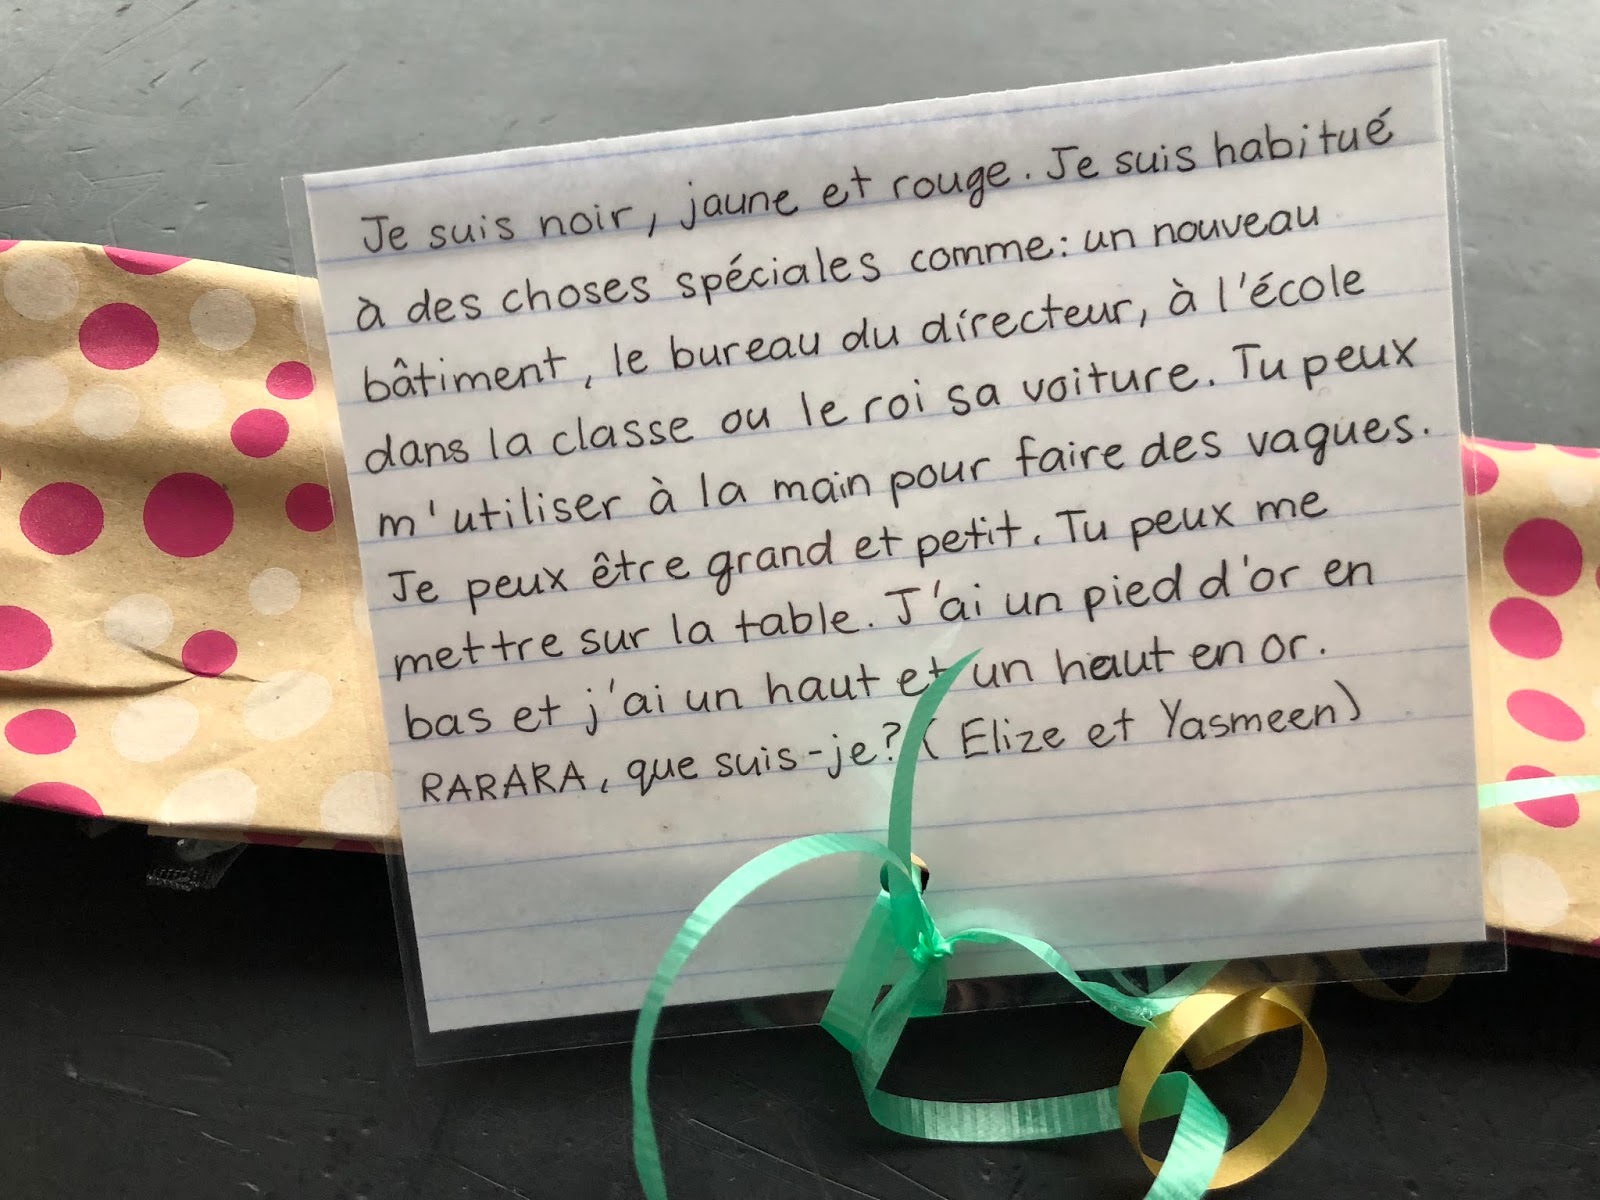 Je suis noir, jaune et rouge. Je suis habitué
à des choses spéciales comme: un nouveau
bâtiment, le bureau du directeur, à l'école
dans la classe ou le roi sa voiture. Tu peux
m'utiliser à la main pour faire des vagues.
Je peux être grand et petit. Tu peux me
mettre sur la table. J'ai un pied d'or en
bas et j'ai un haut et un haut en or.
RARARA, que suis-je? (Elize et Yasmeen)